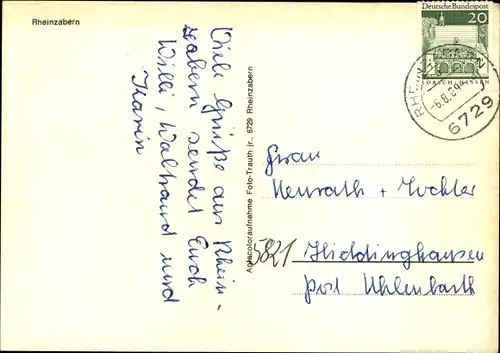 Rheinzabern
Viele Grüße aus Rhein-
zabern sendet Euch
Willi, Waltraud und
Karin
Agfacoloraufnahme Foto-Trauth jr., 6729 Rheinzabern
Deutsche Bundespost
20
LORSCH HESSEN
-6.8.69
6729
Frau
Neurath + Tochter
5821 Hiddinghausen
post Uhlenbarth